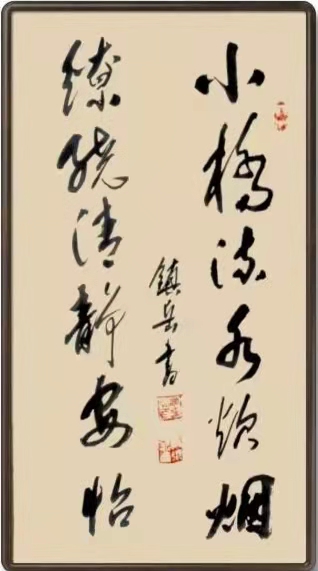 小橋流水炊烟
繚繞清静安怡
鎮岳書